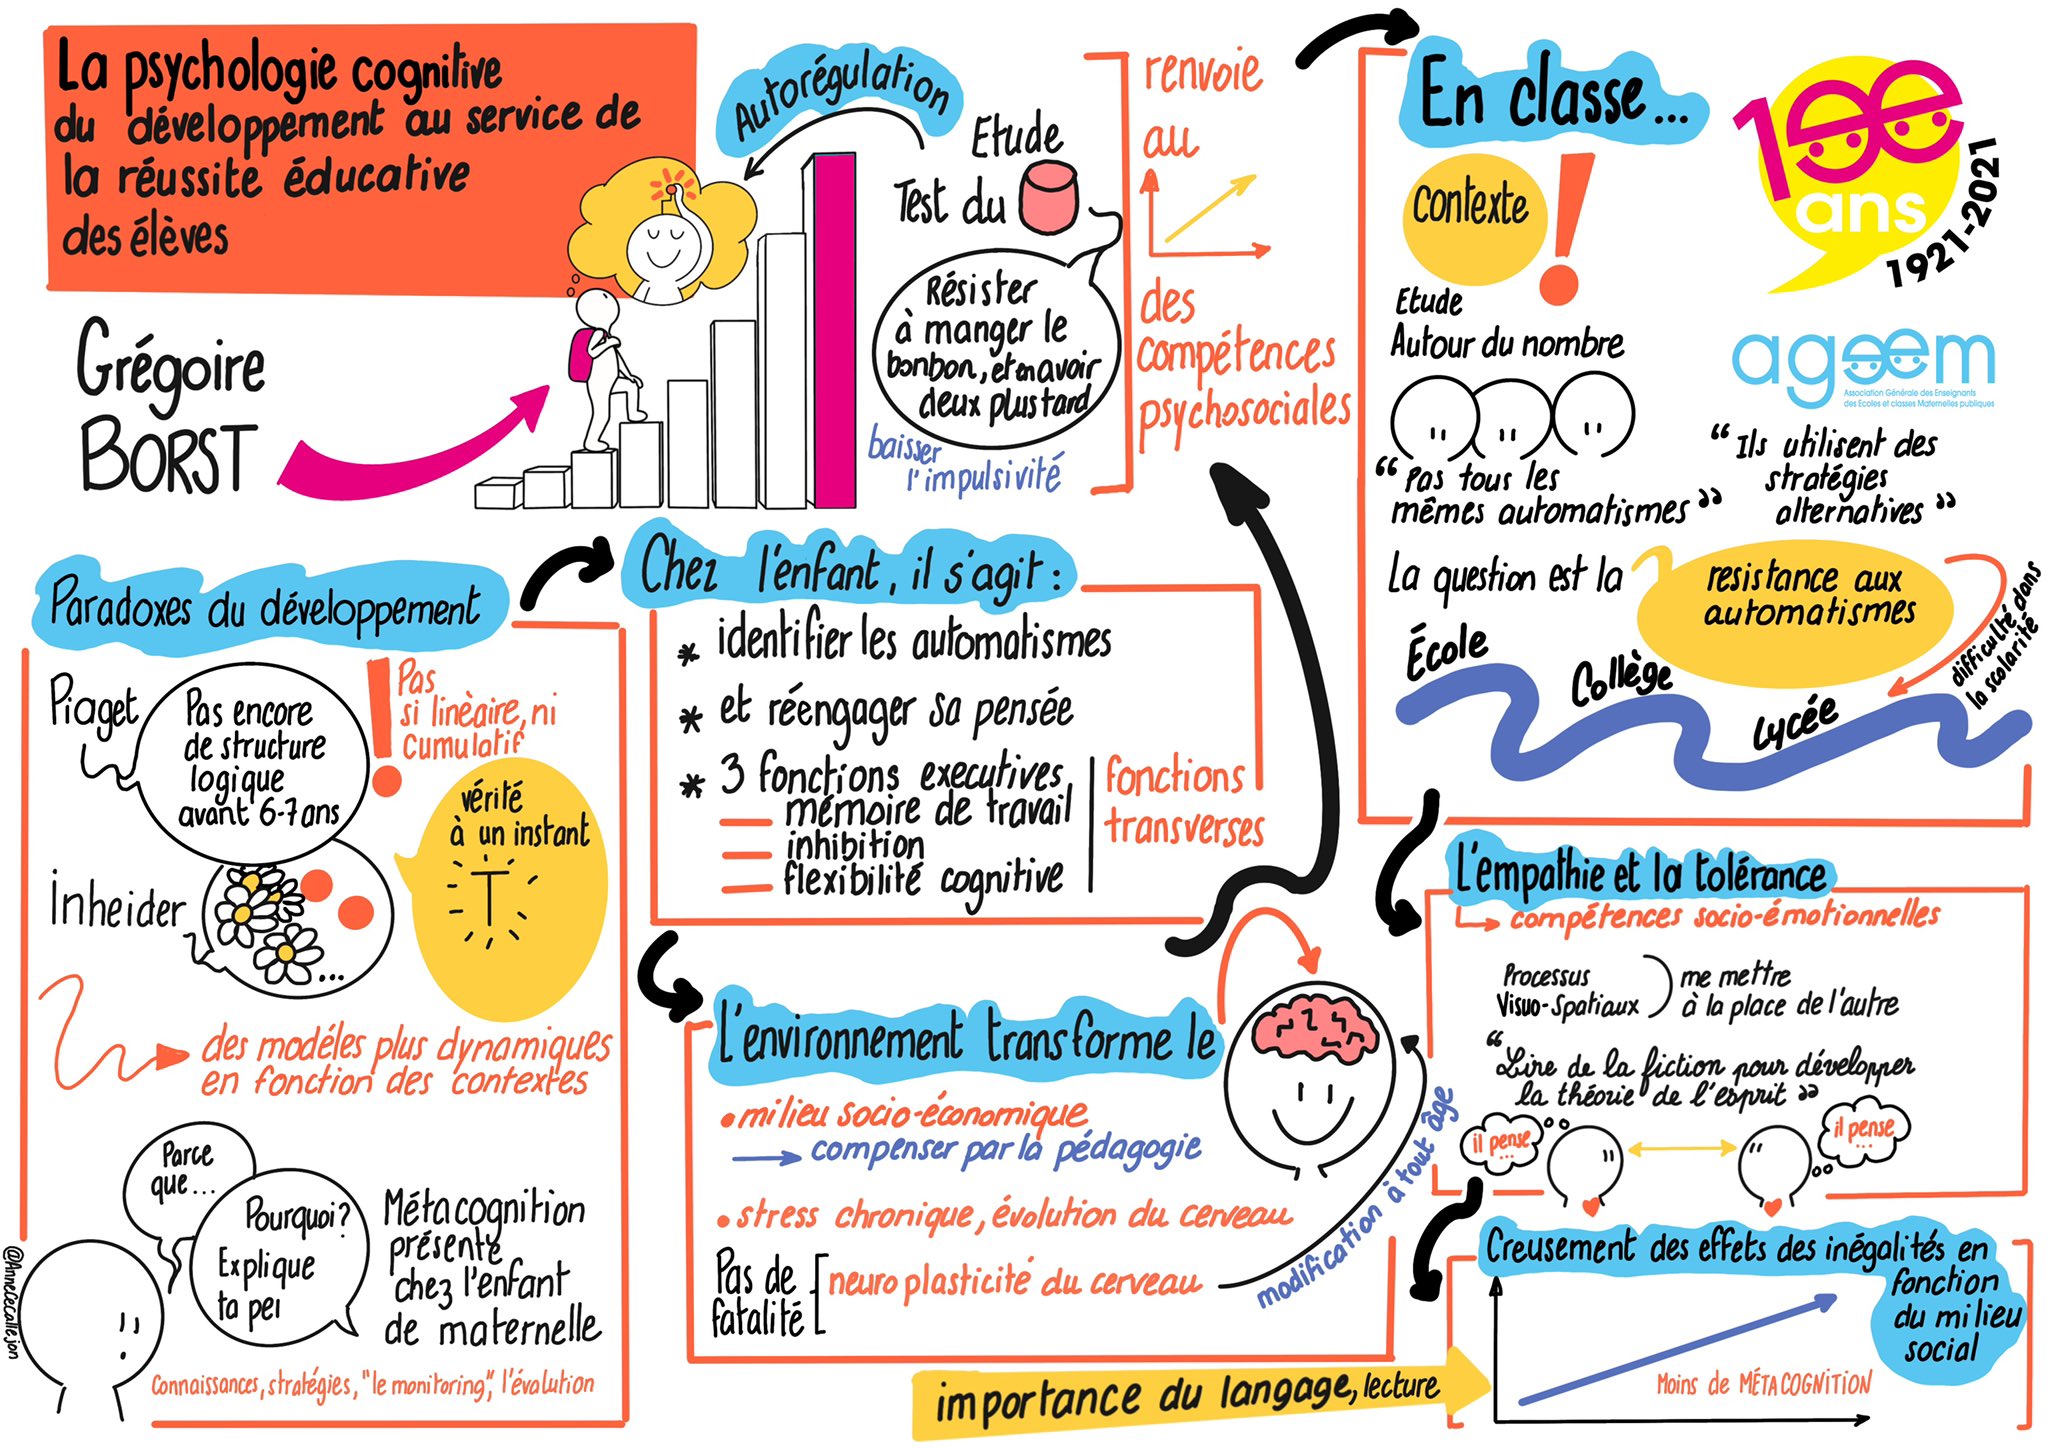 La psychologie cognitive
du développement au service de
la réussite éducative
des élèves
Grégoire
BORST
Autorégulation
Etude
Test du
Résister
à manger le
bonbon, et en avoir
deux plus tard
baisser
l'impulsivité
renvoie
au
des
compétences
psychosociales
Paradoxes du développement
Piaget
Pas encore
de structure
logique
avant 6-7 ans
Pas
si linèaire, ni
cumulatif
vérité
à un instant
T
Inheider
...
des modéles plus dynamiques
en fonction des contextes
Parce
que...
Pourquoi?
Explique
ta pei
Métacognition
présente
chez l'enfant
de maternelle
Connaissances, stratégies, "le monitoring", l'évolution
@AnneCecalie.jon
Chez l'enfant, il s'agit :
* identifier les automatismes
* et réengager sa pensée
* 3 fonctions executives
mémoire de travail
inhibition
flexibilité cognitive
fonctions
transverses
L'environnement transforme le
• milieu socio-économique
compenser par la pédagogie
• stress chronique, évolution du cerveau
Pas de
fatalité
neuro plasticité du cerveau
modification à tout âge
importance du langage, lecture
En classe...
contexte
Etude
Autour du nombre
“ Pas tous les
mêmes automatismes ”
“ Ils utilisent des
stratégies
alternatives ”
La question est la
resistance aux
automatismes
École
Collège
Lycée
difficulté dans
la scolarité
100
ans
1921-2021
ageem
Association Générale des Enseignants
des Ecoles et classes Maternelles publiques
L'empathie et la tolérance
compétences socio-émotionnelles
Processus
Visuo-Spatiaux
me mettre
à la place de l'autre
“ Lire de la fiction pour développer
la théorie de l'esprit ”
il pense
...
il pense
...
Creusement des effets des inégalités en
fonction
du milieu
social
Moins de MÉTACOGNITION